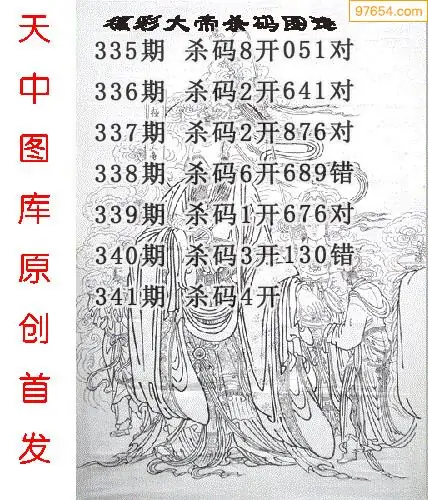 97654.com
福彩大帝杀码图迷
335期 杀码8开051对
336期 杀码2开641对
337期 杀码2开876对
338期 杀码6开689错
339期 杀码1开676对
340期 杀码3开130错
341期 杀码4开
天中图库原创首发